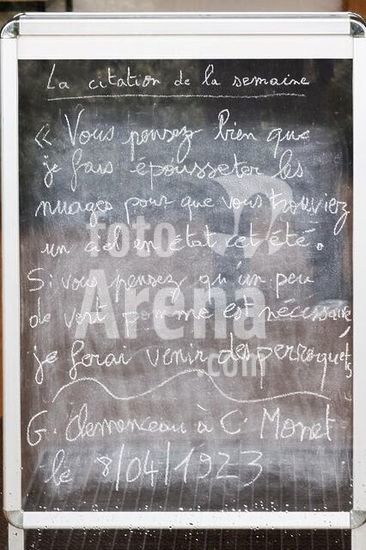 La citation de la semaine
« Vous pensez bien que
je fais épousseter les
nuages pour que vous trouviez
un ciel en état cet été.
Si vous pensez qu'un peu
de vent
est nécessaire,
je ferai venir des perroquets
G. Clemenceau à C. Monet
le 8/04/1923
foto
Arena
.com